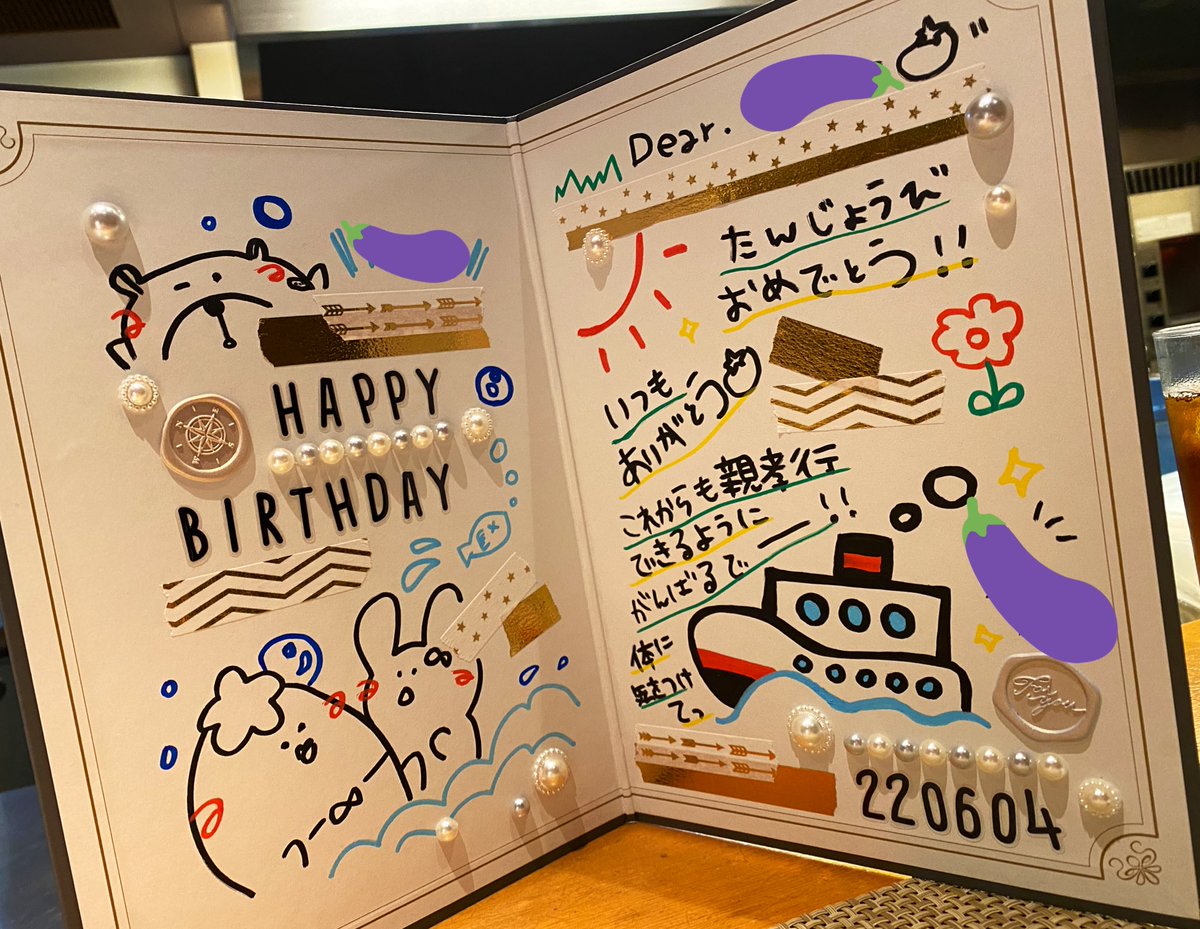 HAPPY
BIRTHDAY
Dear.
たんじょうび
おめでとう!!
いつも
ありがとう
これからも親孝行
できるように
がんばるでー!!
体に
気をつけ
てっ
For you
220604